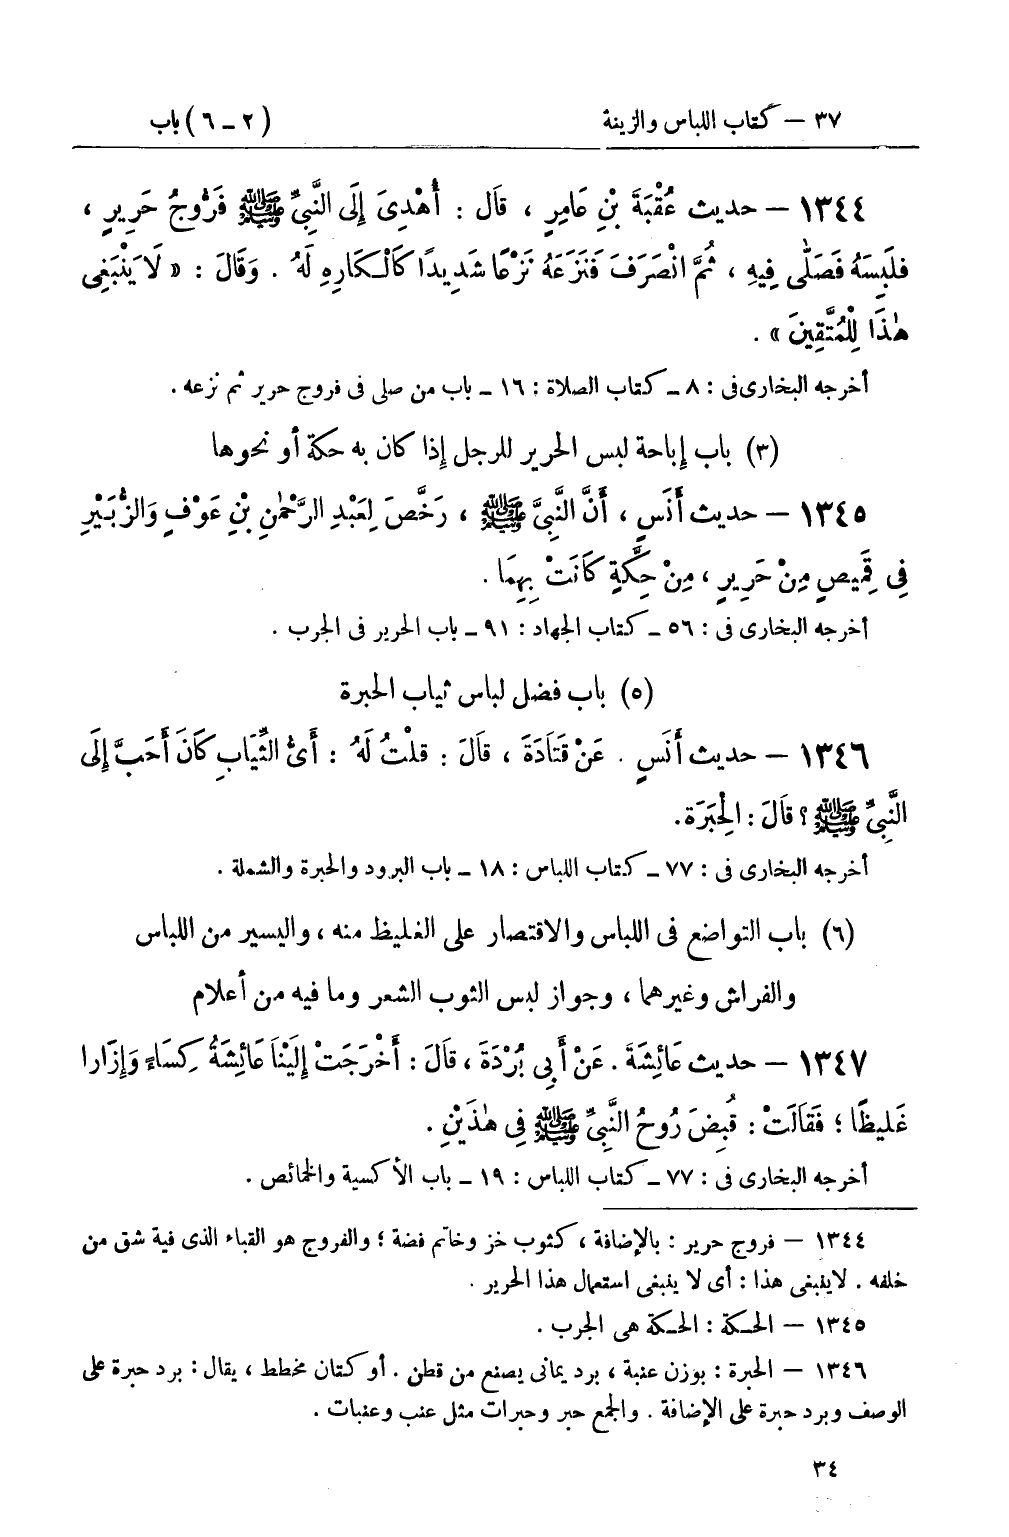 ٣٧ – كتاب اللباس والزينة (٢ – ٦) باب
١٣٤٤ – حديث عُقْبَةَ بْنِ عَامِرٍ ، قَال : أُهْدِىَ إِلَى النَّبِىِّ ﷺ فَرُّوجُ حَرِيرٍ ،
فلَبِسَهُ فَصَلَّى فِيهِ ، ثُمَّ انْصَرَفَ فَنَزَعَهُ نَزْعًا شَدِيدًا كَالْكَارِهِ لَهُ . وَقَالَ : « لَا يَنْبَغِى
هٰذَا لِلْمُتَّقِينَ » .
أخرجه البخارى فى : ٨ – كتاب الصلاة : ١٦ – باب من صلى فى فروج حرير ثم نزعه .
(٣) باب إباحة لبس الحرير للرجل إذا كان به حكة أو نحوها
١٣٤٥ – حديث أَنَسٍ ، أَنَّ النَّبِىَّ ﷺ ، رَخَّصَ لِعَبْدِ الرَّحْمٰنِ بْنِ عَوْفٍ وَالزُّبَيْرِ
فِى قَمِيصٍ مِنْ حَرِيرٍ ، مِنْ حِكَّةٍ كَانَتْ بِهِمَا .
أخرجه البخارى فى : ٥٦ – كتاب الجهاد : ٩١ – باب الحرير فى الجرب .
(٥) باب فضل لباس ثياب الحبرة
١٣٤٦ – حديث أَنَسٍ . عَنْ قَتَادَةَ ، قَالَ : قلْتُ لَهُ : أَىُّ الثِّيَابِ كَانَ أَحَبَّ إِلَى
النَّبِىِّ ﷺ ؟ قَالَ : الْحِبَرَة.
أخرجه البخارى فى : ٧٧ – كتاب اللباس : ١٨ – باب البرود والحبرة والشملة .
(٦) باب التواضع فى اللباس والاقتصار على الغليظ منه ، واليسير من اللباس
والفراش وغيرهما ، وجواز لبس الثوب الشعر وما فيه من أعلام
١٣٤٧ – حديث عَائِشَةَ . عَنْ أَبِى بُرْدَةَ ، قَالَ : أَخْرَجَتْ إِلَيْنَا عَائِشَةُ كِسَاءً وَإِزَارا
غَلِيظًا ؛ فَقَالَتْ : قُبِضَ رُوحُ النَّبِىِّ ﷺ فِى هٰذَيْنِ .
أخرجه البخارى فى : ٧٧ – كتاب اللباس : ١٩ – باب الأكسية والخمائص .
١٣٤٤ – فروج حرير : بالإضافة ، كثوب خز وخاتم فضة ؛ والفروج هو القباء الذى فية شق من
خلفه . لاينبغى هذا : أى لا ينبغى استعمال هذا الحرير .
١٣٤٥ – الحكة : الحكة هى الجرب .
١٣٤٦ – الحبرة : بوزن عنبة ، برد يمانى يصنع من قطن . أو كتان مخطط ، يقال : برد حبرة على
الوصف وبرد حبرة على الإضافة . والجمع حبر وحبرات مثل عنب وعنبات .
٣٤